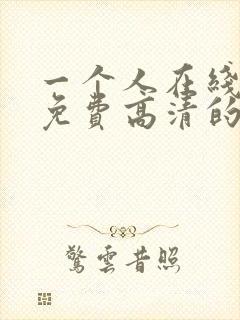 一个人在线
免费高清的
驚雲昔照